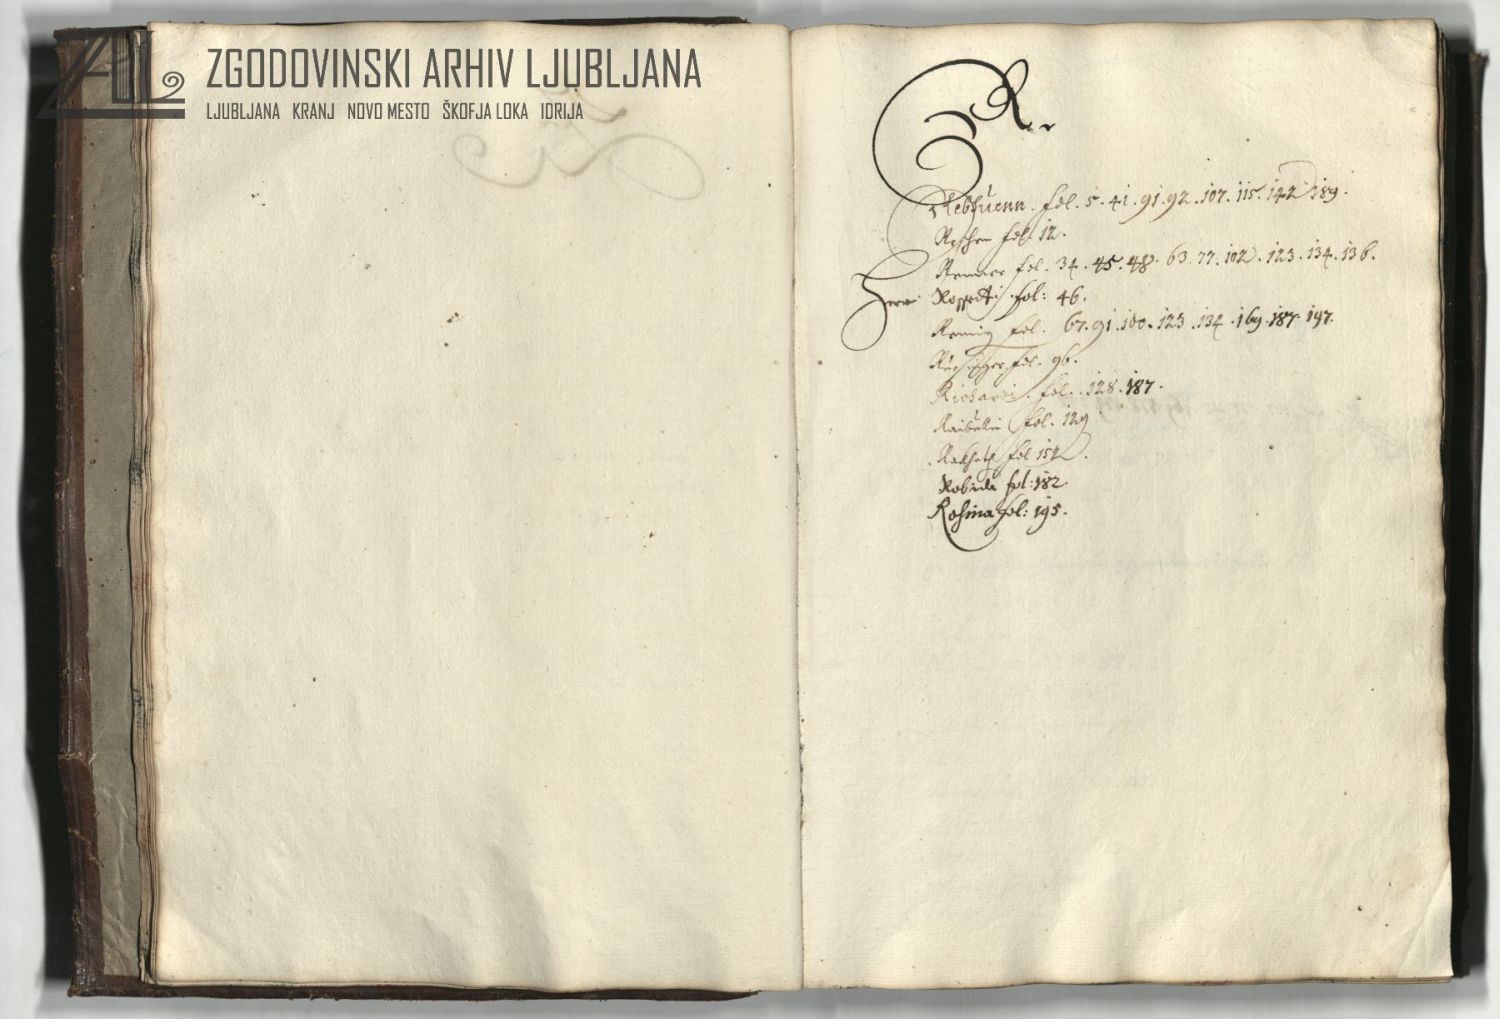 ZGODOVINSKI ARHIV LJUBLJANA
LJUBLJANA KRANJ NOVO MESTO ŠKOFJA LOKA IDRIJA
R.
Rebhuenn. fol. 5. 41. 91. 92. 107. 115. 142. 189.
fol. 12.
Renner fol. 34. 45. 48. 63. 77. 102. 123. 134. 136.
Herr Rossetti. fol: 46.
Remig fol. 67. 91. 100. 123. 134. 169. 187. 197.
fol. 96.
Richardi. fol. 128. 187.
fol. 129
fol 152.
Robida fol: 182.
Rosina fol: 195.